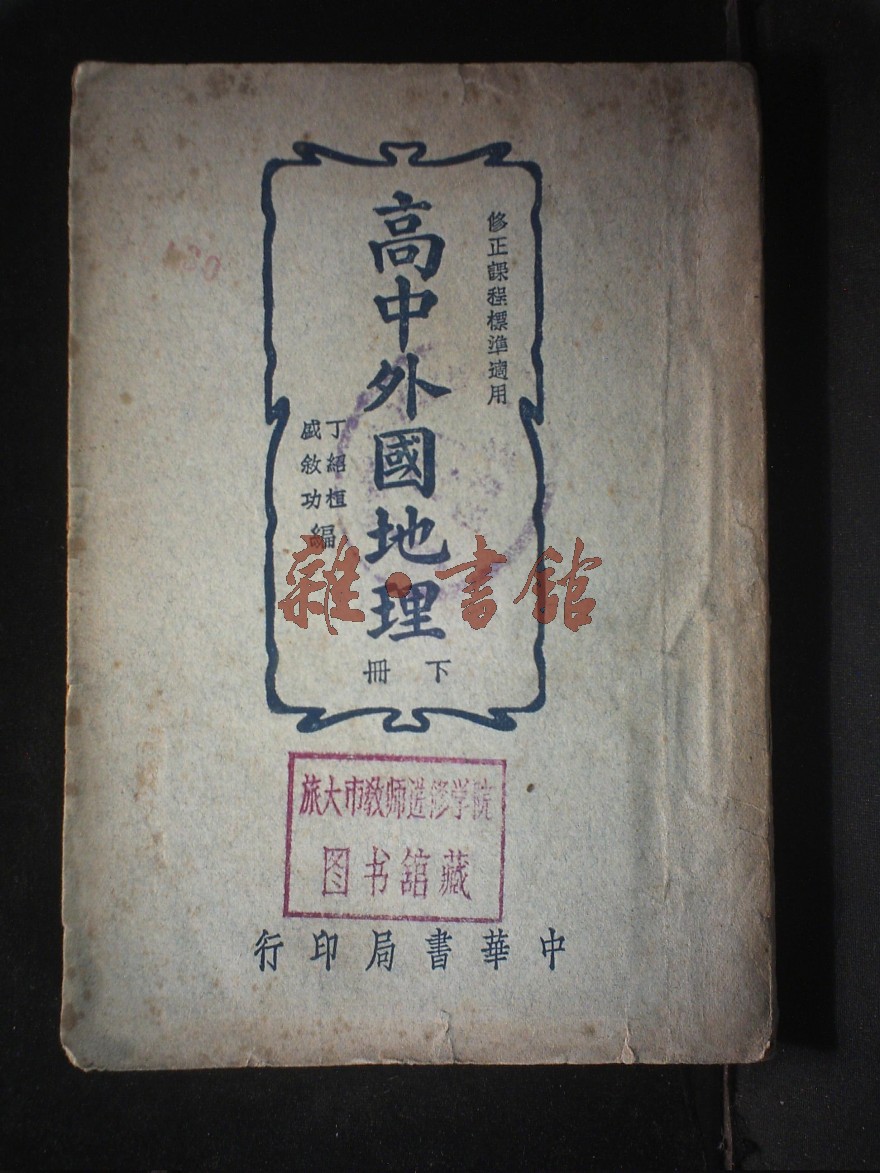 修正課程標準適用
高中外國地理
下冊
丁紹桓
盛敘功
編
雜·書館
旅大市教师进修学院
图书舘藏
中華書局印行